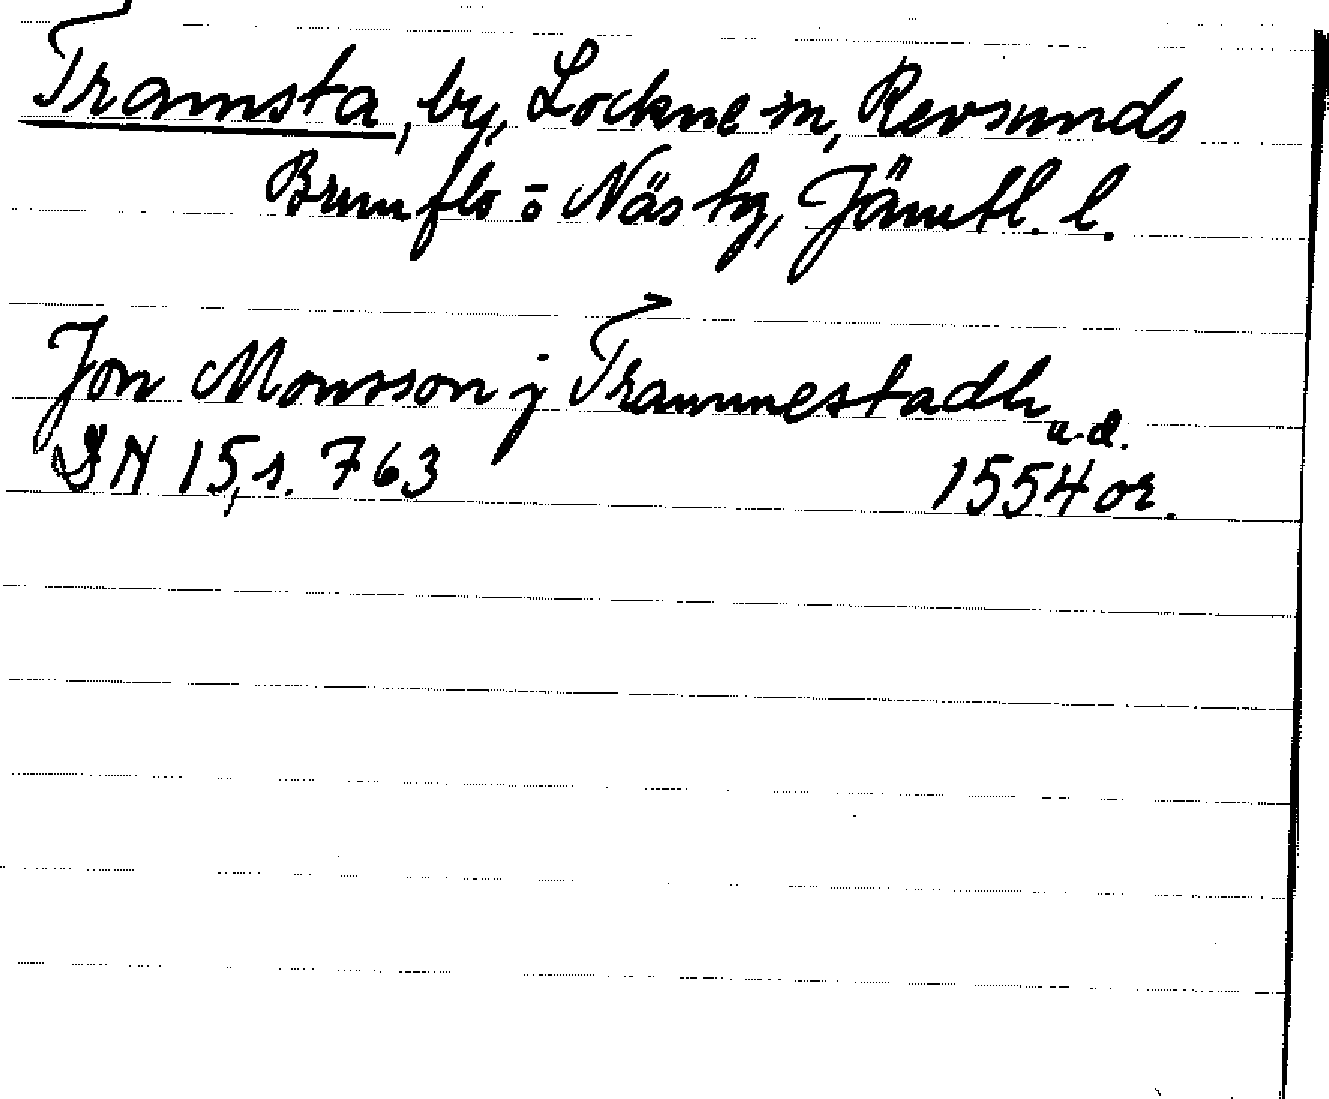 Tramsta, by, Lockne sn, Revsunds
Brunflo o Näs tg, Jämtl. l.
Jon Monsson j Trammestadh
u.d.
DN 15, s. 763 1554 or.